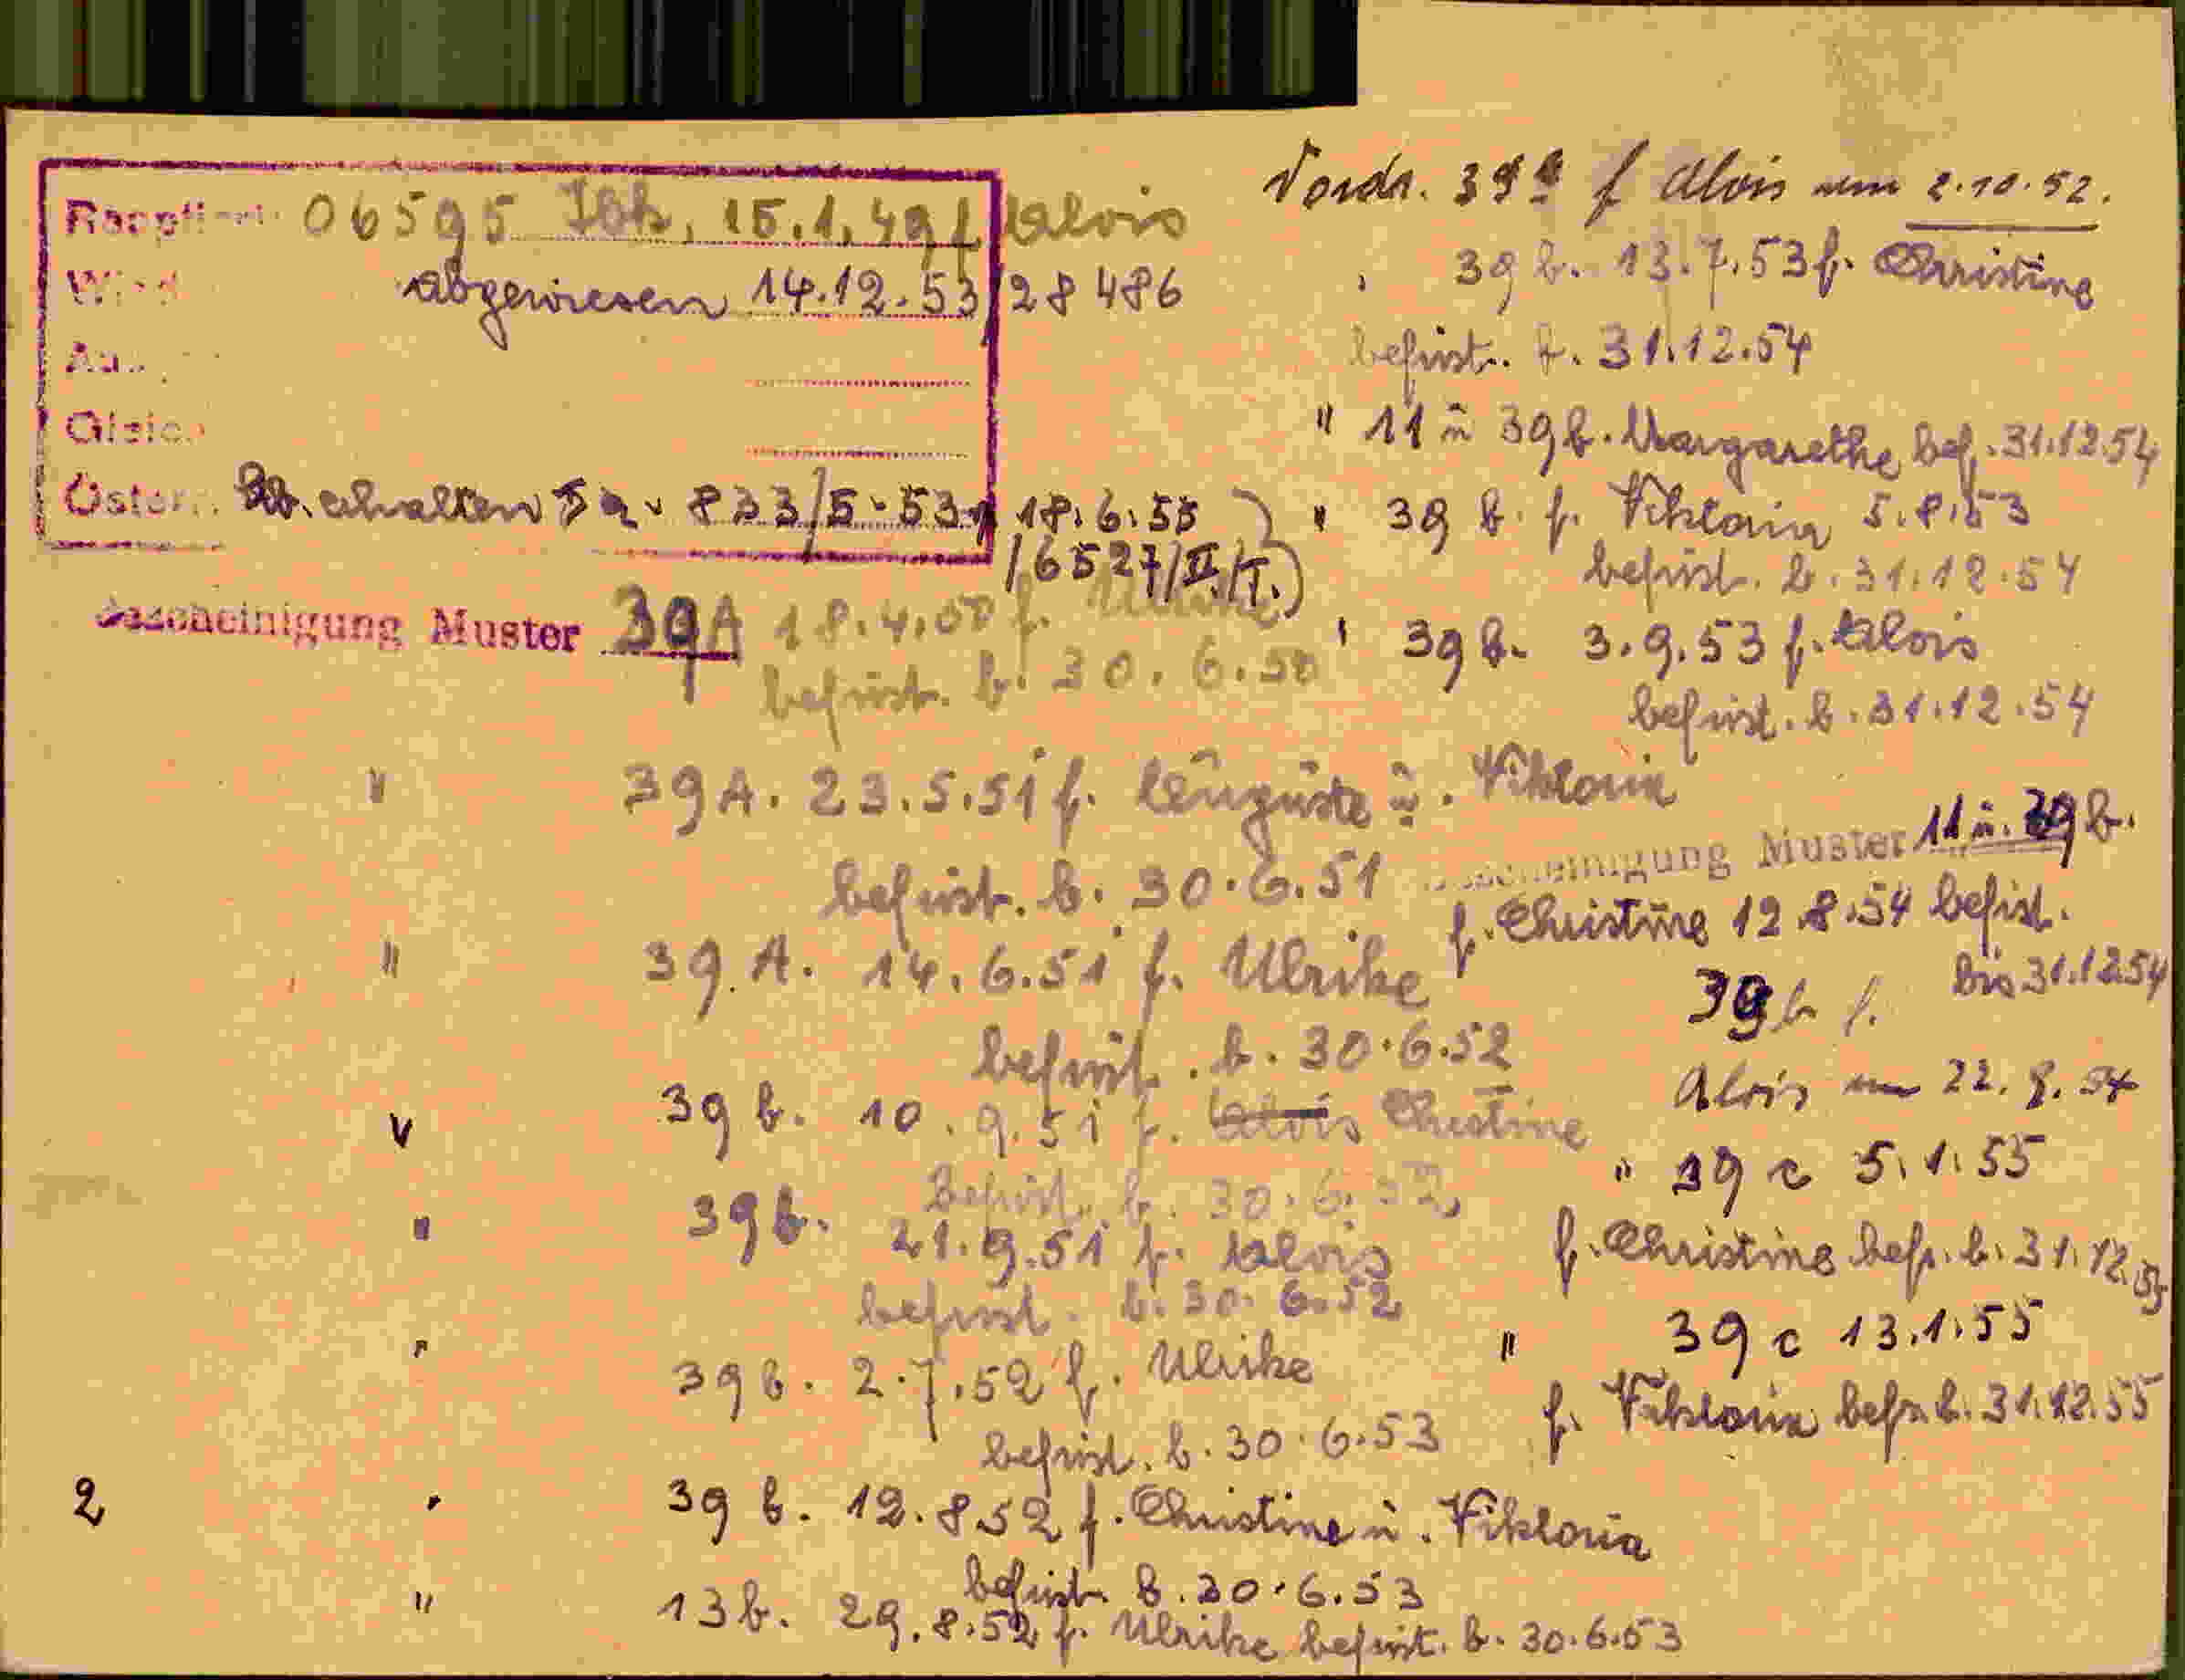 06595 Ibk, 15.1.49 f Alois
abgewiesen 14.12.53/28486
Österr. erhalten 833/5-53 18.6.55
/6527/II/I.)
Bescheinigung Muster 39A 18.4.50 f. Ulrike
befrist. b. 30.6.50
" 39A. 23.5.51 f. Auguste u. Viktoria
befrist. b. 30.6.51
" 39.A. 14.6.51 f. Ulrike
befrist. b. 30.6.52
39 b. 10.9.51 f. Alois Christine
Befrist. b. 30.6.52
" 39b. 21.9.51 f. Alois
befrist. b. 30.6.52
" 39b. 2.7.52 f. Ulrike
befrist. b. 30.6.53
2 " 39 b. 12.8.52 f. Christine u. Viktoria
befrist. b. 30.6.53
" 13b. 29.8.52 f. Ulrike befrist. b. 30.6.53
f Alois 2.10.52.
39 b. 13.7.53 f. Christine
befrist. b. 31.12.54
" 11 u 39b. Margarethe bef. 31.12.54
" 39 b. f. Viktoria 5.8.53
befrist. b. 31.12.54
" 39 b. 3.9.53 f. Alois
befrist. b. 31.12.54
Bescheinigung Muster 11 u. 39 b.
f. Christine 12.8.54 befrist.
bis 31.12.54
39b f.
Alois 22. 8. 54
" 39 c 5.1.55
f. Christine befr. b. 31.12.55
" 39 c 13.1.55
f. Viktoria befr. b. 31.12.55